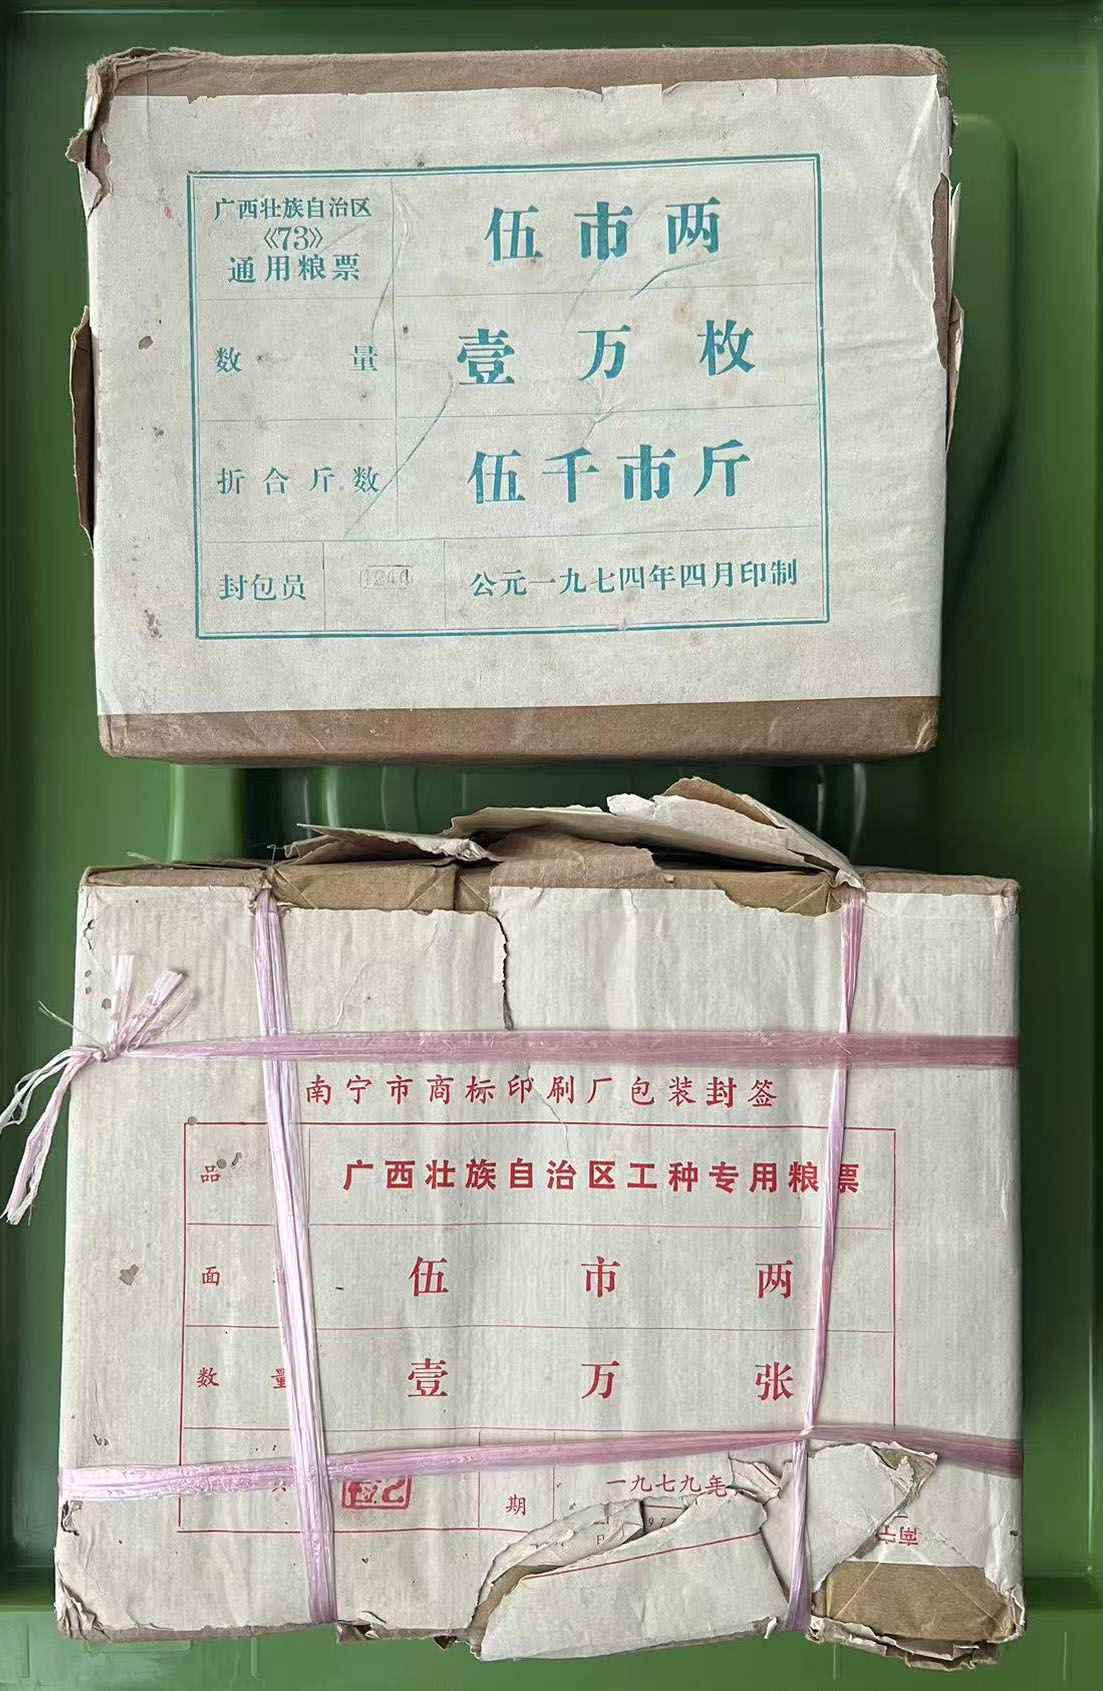 广西壮族自治区
《73》
通用粮票
伍市两
数量
壹万枚
折合斤数
伍千市斤
封包员
公元一九七四年四月印制
南宁市商标印刷厂包装封签
品
广西壮族自治区工种专用粮票
面
伍市两
数量
壹万张
期
一九七九年
南宁